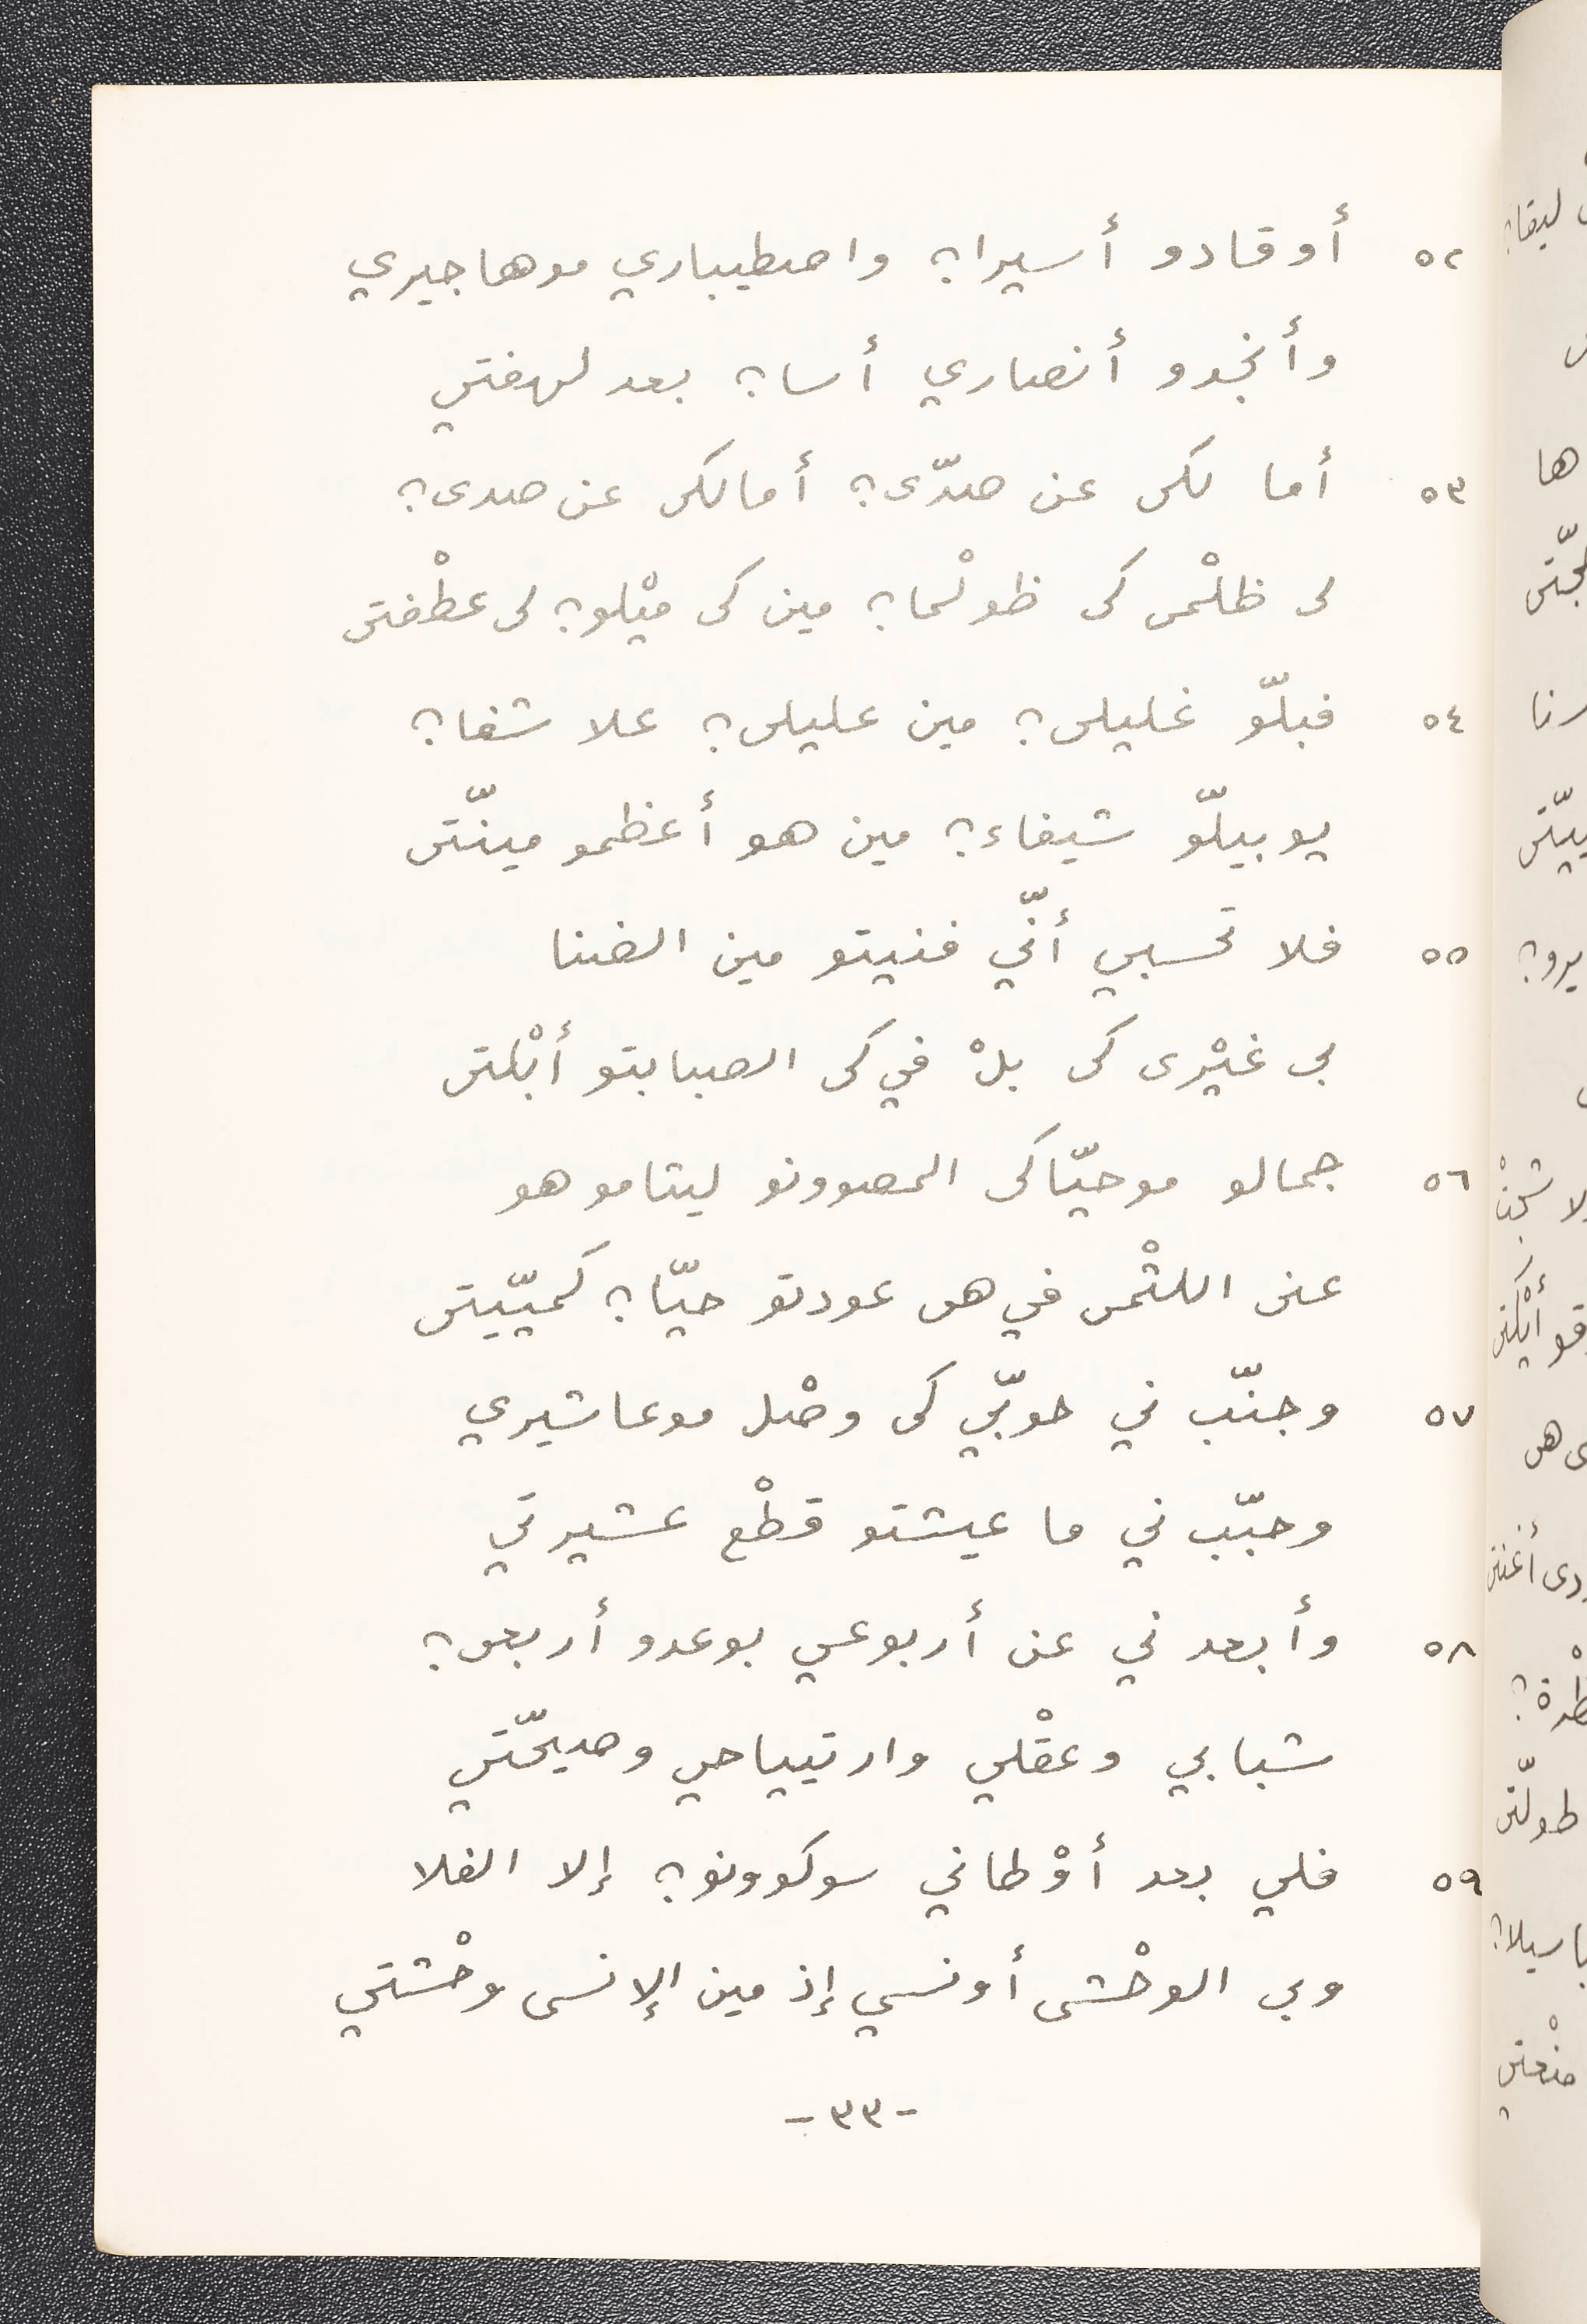 ٥٢ أوقادو أسيرا؟ واصطيباري موهاجيري
وأنجدو أنصاري أسا؟ بعد لهفتي
٥٣ أما لكى عن صدّى؟ أمالكى عن صدى؟
لى ظلْمى كى ظولْما؟ مين كى ميْلو؟ لى عطْفتى
٥٤ فبلّو غليلى؟ مين عليلى؟ علا شفا؟
يوبيلّو شيفاء؟ مين هو أعظمو مينّتى
٥٥ فلا تحسبي أنّي فنيتو مين الضنا
بى غيْرى كى بلْ في كى الصبابتو أبْلتى
٥٦ جمالو موحيّاكى المصوونو ليتامو هو
عنى اللثْمى في هى عودتو حيّا؟ كميّيتى
٥٧ وجنّب ني حوبّي كى وصْل موعاشيري
وحبّب ني ما عيشتو قطْع عشيرتي
٥٨ وأبعد ني عن أربوعي بوعدو أربعى؟
شبابي وعقْلي وارتيياحي وصيحّتي
٥٩ فلي بعد أوْطاني سوكوونو؟ إلا الفلا
وبى الوحْشى أونسي إذ مين الإنسى وحْشتي
-٣٣-